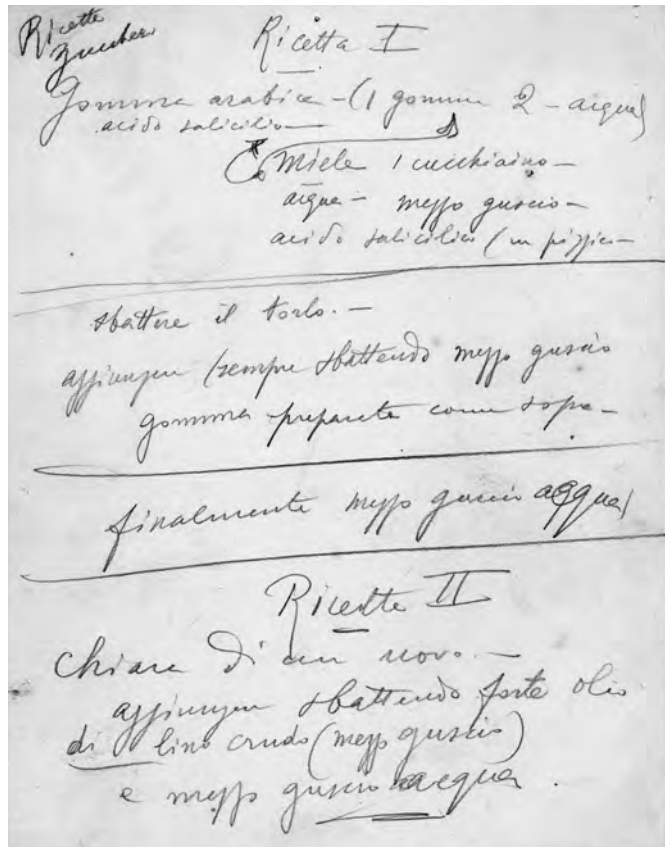 Ricette
Zuccheri
Ricetta I
Gomma arabica - (1 gomma 2 - acqua)
acido salicilico
Miele 1 cucchiaino -
acqua - mezzo guscio -
acido salicilico (un pizzico -
sbattere il torlo. -
aggiungere (sempre sbattendo mezzo guscio
gomma preparata come sopra -
finalmente mezzo guscio acqua)
Ricetta II
Chiara di un uovo. -
aggiungere sbattendo forte olio
di lino crudo (mezzo guscio)
e mezzo guscio acqua.